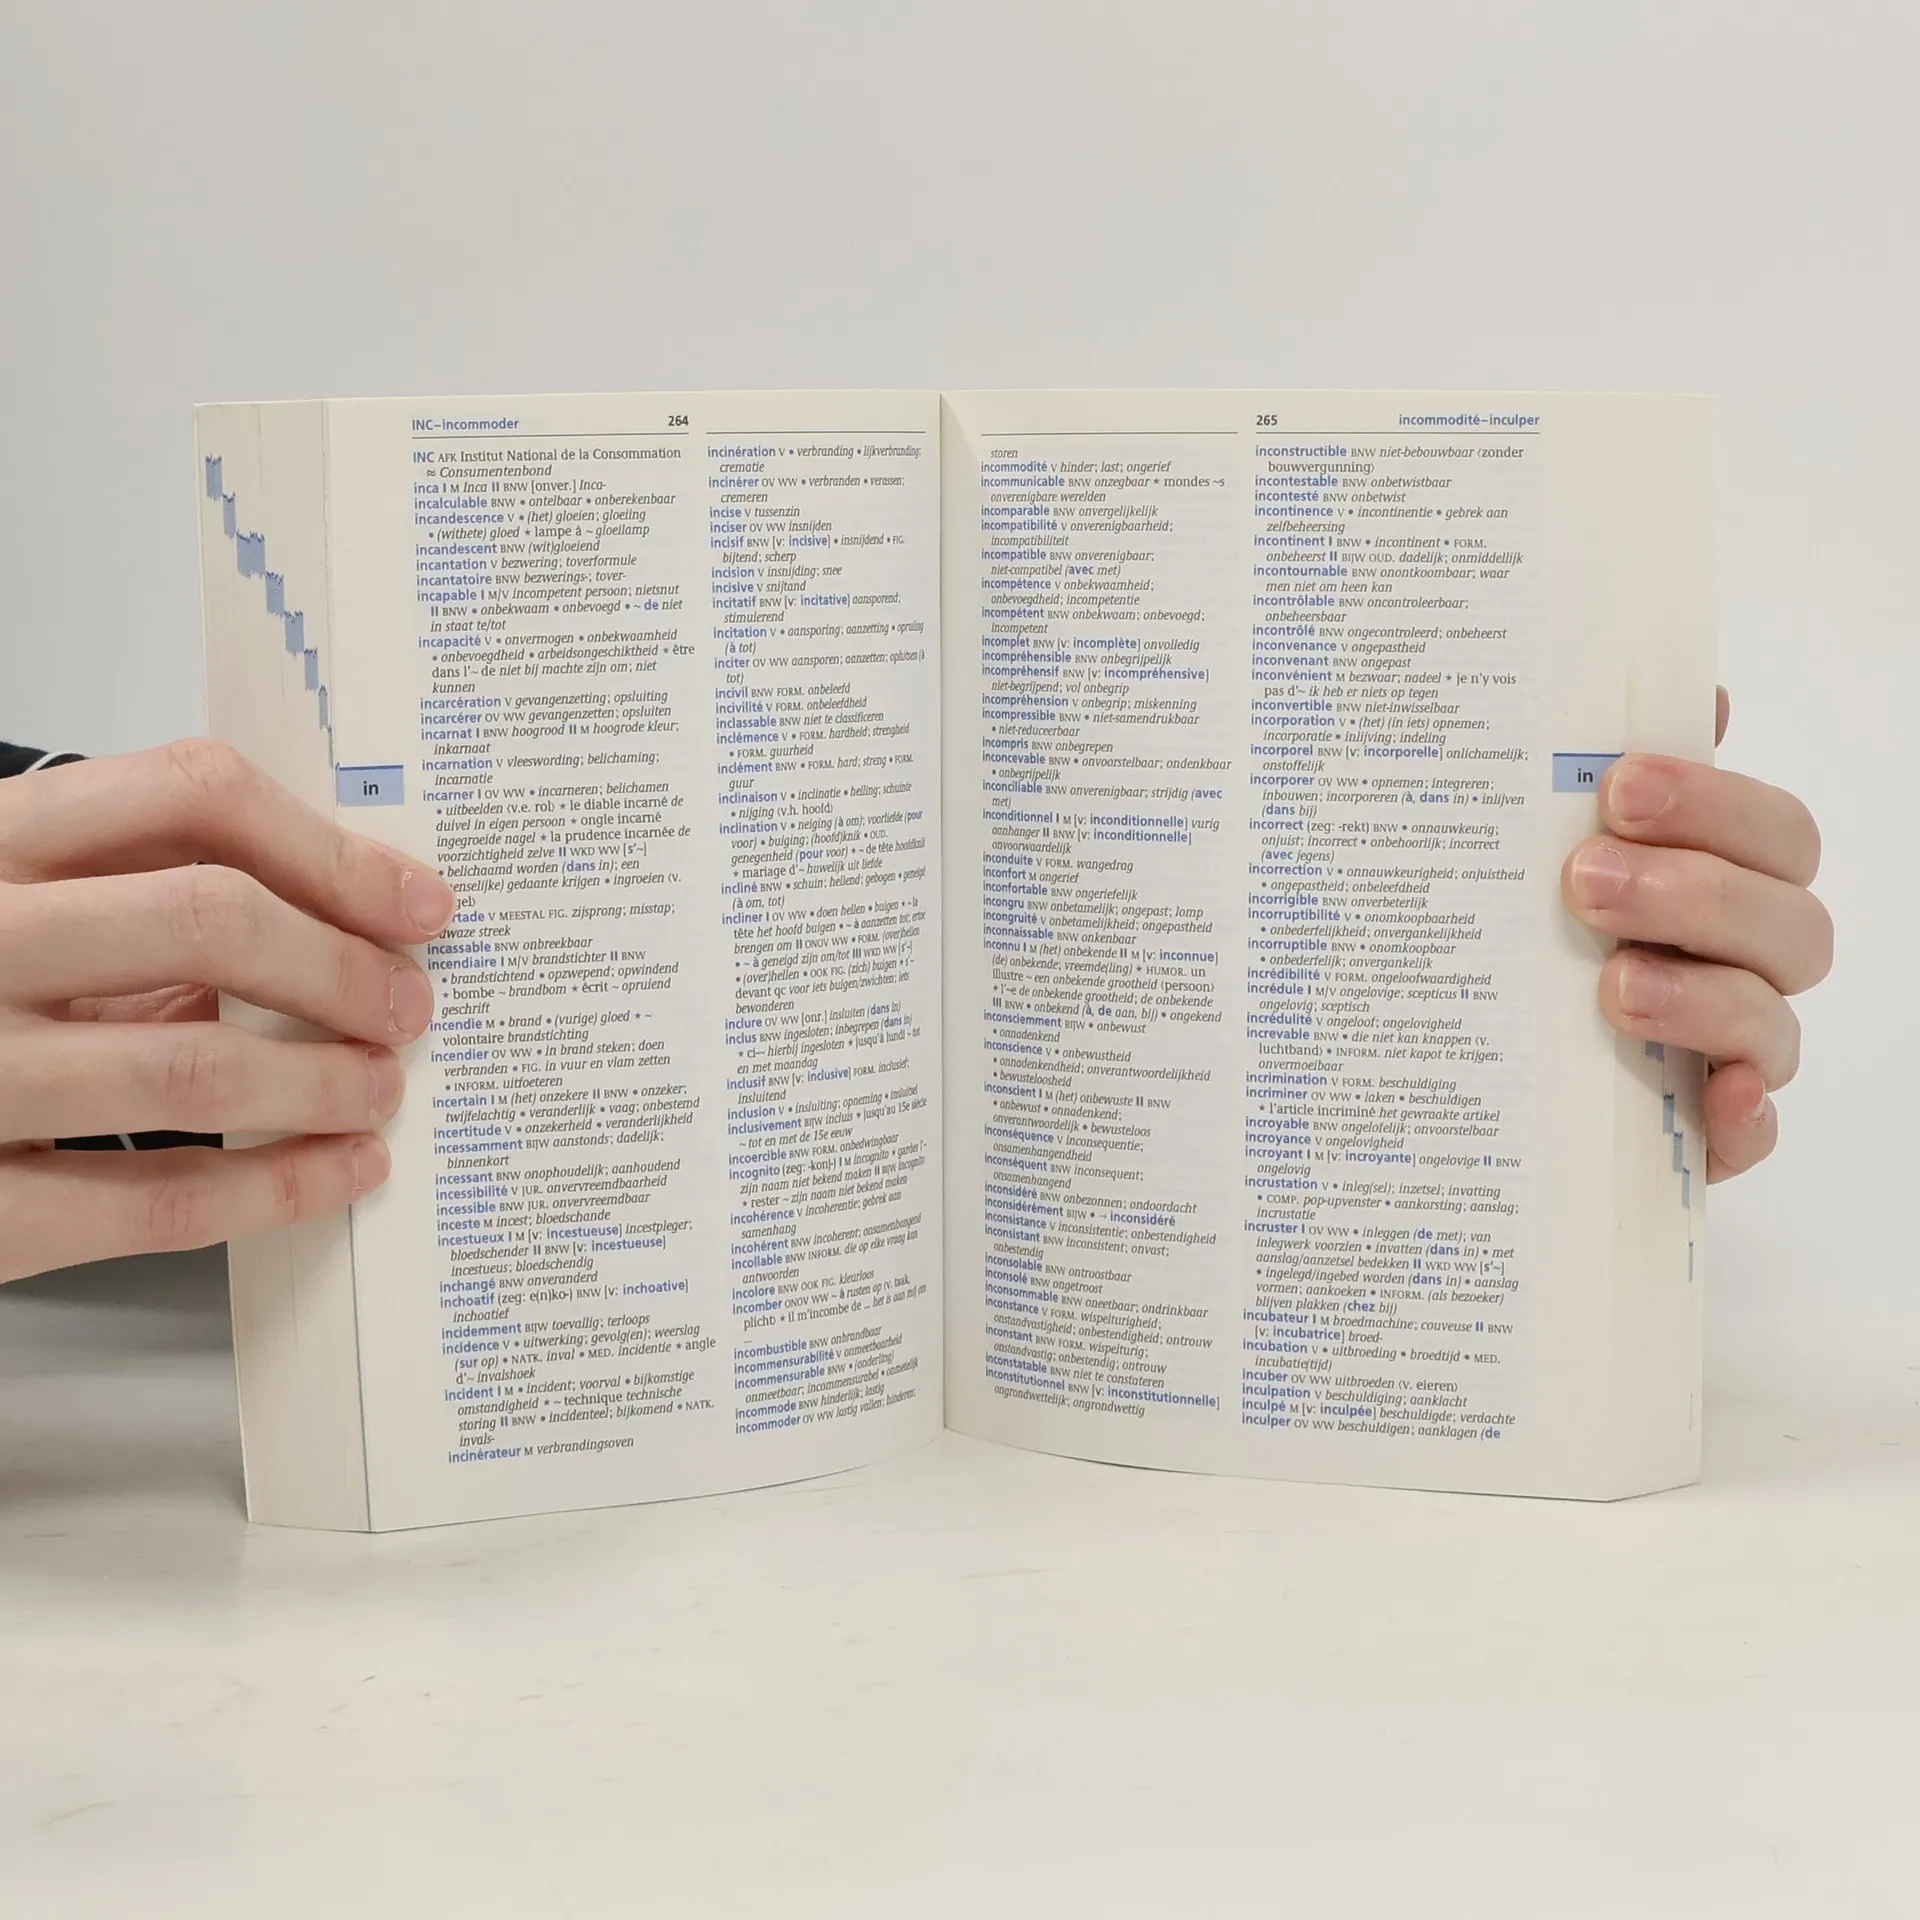 INC–incommoder 264
INC AFK Institut National de la Consommation
≈ Consumentenbond
inca I M Inca II BNW [onver.] Inca-
incalculable BNW • ontelbaar • onberekenbaar
incandescence V • (het) gloeien; gloeiing
• (withete) gloed ★ lampe à ~ gloeilamp
incandescent BNW (wit)gloeiend
incantation V bezwering; toverformule
incantatoire BNW bezwerings-; tover-
incapable I M/V incompetent persoon; nietsnut
II BNW • onbekwaam • onbevoegd • ~ de niet
in staat te/tot
incapacité V • onvermogen • onbekwaamheid
• onbevoegdheid • arbeidsongeschiktheid ★ être
dans l'~ de niet bij machte zijn om; niet
kunnen
incarcération V gevangenzetting; opsluiting
incarcérer OV WW gevangenzetten; opsluiten
incarnat I BNW hoogrood II M hoogrode kleur;
inkarnaat
incarnation V vleeswording; belichaming;
incarnatie
incarner I OV WW • incarneren; belichamen
• uitbeelden ⟨v.e. rol⟩ ★ le diable incarné de
duivel in eigen persoon ★ ongle incarné
ingegroeide nagel ★ la prudence incarnée de
voorzichtigheid zelve II WKD WW [s'~]
• belichaamd worden (dans in); een
enselijke) gedaante krijgen • ingroeien ⟨v.
gel⟩
rtade V MEESTAL FIG. zijsprong; misstap;
dwaze streek
incassable BNW onbreekbaar
incendiaire I M/V brandstichter II BNW
• brandstichtend • opzwepend; opwindend
★ bombe ~ brandbom ★ écrit ~ opruiend
geschrift
incendie M • brand • (vurige) gloed ★ ~
volontaire brandstichting
incendier OV WW • in brand steken; doen
verbranden • FIG. in vuur en vlam zetten
• INFORM. uitfoeteren
incertain I M (het) onzekere II BNW • onzeker;
twijfelachtig • veranderlijk • vaag; onbestemd
incertitude V • onzekerheid • veranderlijkheid
incessamment BIJW aanstonds; dadelijk;
binnenkort
incessant BNW onophoudelijk; aanhoudend
incessibilité V JUR. onvervreemdbaarheid
incessible BNW JUR. onvervreemdbaar
inceste M incest; bloedschande
incestueux I M [v: incestueuse] incestpleger;
bloedschender II BNW [v: incestueuse]
incestueus; bloedschendig
inchangé BNW onveranderd
inchoatif (zeg: e(n)ko-) BNW [v: inchoative]
inchoatief
incidemment BIJW toevallig; terloops
incidence V • uitwerking; gevolg(en); weerslag
(sur op) • NATK. inval • MED. incidentie ★ angle
d'~ invalshoek
incident I M • incident; voorval • bijkomstige
omstandigheid ★ ~ technique technische
storing II BNW • incidenteel; bijkomend • NATK.
invals-
incinérateur M verbrandingsoven
incinération V • verbranding • lijkverbranding;
crematie
incinérer OV WW • verbranden • verassen;
cremeren
incise V tussenzin
inciser OV WW insnijden
incisif BNW [v: incisive] • insnijdend • FIG.
bijtend; scherp
incision V insnijding; snee
incisive V snijtand
incitatif BNW [v: incitative] aansporend;
stimulerend
incitation V • aansporing; aanzetting • opruiing
(à tot)
inciter OV WW aansporen; aanzetten; ophitsen (à
tot)
incivil BNW FORM. onbeleefd
incivilité V FORM. onbeleefdheid
inclassable BNW niet te classificeren
inclémence V • FORM. hardheid; strengheid
• FORM. guurheid
inclément BNW • FORM. hard; streng • FORM.
guur
inclinaison V • inclinatie • helling; schuinte
• nijging ⟨v.h. hoofd⟩
inclination V • neiging (à om); voorliefde (pour
voor) • buiging; (hoofd)knik • OUD.
genegenheid (pour voor) ★ ~ de tête hoofdknik
★ mariage d'~ huwelijk uit liefde
incliné BNW • schuin; hellend; gebogen • geneigd
(à om, tot)
incliner I OV WW • doen hellen • buigen ★ ~ la
tête het hoofd buigen • ~ à aanzetten tot; ertoe
brengen om II ONOV WW • FORM. (over)hellen
• ~ à geneigd zijn om/tot III WKD WW [s'~]
• (over)hellen • OOK FIG. (zich) buigen ★ s'~
devant qc voor iets buigen/zwichten; iets
bewonderen
inclure OV WW [onr.] insluiten (dans in)
inclus BNW ingesloten; inbegrepen (dans in)
★ ci-~ hierbij ingesloten ★ jusqu'à lundi ~ tot
en met maandag
inclusif BNW [v: inclusive] FORM. inclusief;
insluitend
inclusion V • insluiting; opneming • insluitsel
inclusivement BIJW incluis ★ jusqu'au 15e siècle
~ tot en met de 15e eeuw
incoercible BNW FORM. onbedwingbaar
incognito (zeg: -konj-) I M incognito ★ garder l'~
zijn naam niet bekend maken II BIJW incognito
★ rester ~ zijn naam niet bekend maken
incohérence V • incoherentie; gebrek aan
samenhang
incohérent BNW incoherent; onsamenhangend
incollable BNW INFORM. die op elke vraag kan
antwoorden
incolore BNW OOK FIG. kleurloos
incomber ONOV WW ~ à rusten op ⟨v. taak,
plicht⟩ ★ il m'incombe de ... het is aan mij om
...
incombustible BNW onbrandbaar
incommensurabilité V onmeetbaarheid
incommensurable BNW • (onderling)
onmeetbaar; incommensurabel • onmetelijk
incommode BNW hinderlijk; lastig
incommoder OV WW lastig vallen; hinderen;
in
265 incommodité–inculper
storen
incommodité V hinder; last; ongerief
incommunicable BNW onzegbaar ★ mondes ~s
onverenigbare werelden
incomparable BNW onvergelijkelijk
incompatibilité V onverenigbaarheid;
incompatibiliteit
incompatible BNW onverenigbaar;
niet-compatibel (avec met)
incompétence V onbekwaamheid;
onbevoegdheid; incompetentie
incompétent BNW onbekwaam; onbevoegd;
incompetent
incomplet BNW [v: incomplète] onvolledig
incompréhensible BNW onbegrijpelijk
incompréhensif BNW [v: incompréhensive]
niet-begrijpend; vol onbegrip
incompréhension V onbegrip; miskenning
incompressible BNW • niet-samendrukbaar
• niet-reduceerbaar
incompris BNW onbegrepen
inconcevable BNW • onvoorstelbaar; ondenkbaar
• onbegrijpelijk
inconciliable BNW onverenigbaar; strijdig (avec
met)
inconditionnel I M [v: inconditionnelle] vurig
aanhanger II BNW [v: inconditionnelle]
onvoorwaardelijk
inconduite V FORM. wangedrag
inconfort M ongerief
inconfortable BNW ongeriefelijk
incongru BNW onbetamelijk; ongepast; lomp
incongruité V onbetamelijkheid; ongepastheid
inconnaissable BNW onkenbaar
inconnu I M (het) onbekende II M [v: inconnue]
(de) onbekende; vreemde(ling) ★ HUMOR. un
illustre ~ een onbekende grootheid ⟨persoon⟩
★ l'~e de onbekende grootheid; de onbekende
III BNW • onbekend (à, de aan, bij) • ongekend
inconsciemment BIJW • onbewust
• onnadenkend
inconscience V • onbewustheid
• onnadenkendheid; onverantwoordelijkheid
• bewusteloosheid
inconscient I M (het) onbewuste II BNW
• onbewust • onnadenkend;
onverantwoordelijk • bewusteloos
inconséquence V inconsequentie;
onsamenhangendheid
inconséquent BNW inconsequent;
onsamenhangend
inconsidéré BNW onbezonnen; ondoordacht
inconsidérément BIJW • → inconsidéré
inconsistance V inconsistentie; onbestendigheid
inconsistant BNW inconsistent; onvast;
onbestendig
inconsolable BNW ontroostbaar
inconsolé BNW ongetroost
inconsommable BNW oneetbaar; ondrinkbaar
inconstance V FORM. wispelturigheid;
onstandvastigheid; onbestendigheid; ontrouw
inconstant BNW FORM. wispelturig;
onstandvastig; onbestendig; ontrouw
inconstatable BNW niet te constateren
inconstitutionnel BNW [v: inconstitutionnelle]
ongrondwettelijk; ongrondwettig
inconstructible BNW niet-bebouwbaar ⟨zonder
bouwvergunning⟩
incontestable BNW onbetwistbaar
incontesté BNW onbetwist
incontinence V • incontinentie • gebrek aan
zelfbeheersing
incontinent I BNW • incontinent • FORM.
onbeheerst II BIJW OUD. dadelijk; onmiddellijk
incontournable BNW onontkoombaar; waar
men niet om heen kan
incontrôlable BNW oncontroleerbaar;
onbeheersbaar
incontrôlé BNW ongecontroleerd; onbeheerst
inconvenance V ongepastheid
inconvenant BNW ongepast
inconvénient M bezwaar; nadeel ★ je n'y vois
pas d'~ ik heb er niets op tegen
inconvertible BNW niet-inwisselbaar
incorporation V • (het) (in iets) opnemen;
incorporatie • inlijving; indeling
incorporel BNW [v: incorporelle] onlichamelijk;
onstoffelijk
incorporer OV WW • opnemen; integreren;
inbouwen; incorporeren (à, dans in) • inlijven
(dans bij)
incorrect (zeg: -rekt) BNW • onnauwkeurig;
onjuist; incorrect • onbehoorlijk; incorrect
(avec jegens)
incorrection V • onnauwkeurigheid; onjuistheid
• ongepastheid; onbeleefdheid
incorrigible BNW onverbeterlijk
incorruptibilité V • onomkoopbaarheid
• onbederfelijkheid; onvergankelijkheid
incorruptible BNW • onomkoopbaar
• onbederfelijk; onvergankelijk
incrédibilité V FORM. ongeloofwaardigheid
incrédule I M/V ongelovige; scepticus II BNW
ongelovig; sceptisch
incrédulité V ongeloof; ongelovigheid
increvable BNW • die niet kan knappen ⟨v.
luchtband⟩ • INFORM. niet kapot te krijgen;
onvermoeibaar
incrimination V FORM. beschuldiging
incriminer OV WW • laken • beschuldigen
★ l'article incriminé het gewraakte artikel
incroyable BNW ongelofelijk; onvoorstelbaar
incroyance V ongelovigheid
incroyant I M [v: incroyante] ongelovige II BNW
ongelovig
incrustation V • inleg(sel); inzetsel; invatting
• COMP. pop-upvenster • aankorsting; aanslag;
incrustatie
incruster I OV WW • inleggen (de met); van
inlegwerk voorzien • invatten (dans in) • met
aanslag/aanzetsel bedekken II WKD WW [s'~]
• ingelegd/ingebed worden (dans in) • aanslag
vormen; aankoeken • INFORM. (als bezoeker)
blijven plakken (chez bij)
incubateur I M broedmachine; couveuse II BNW
[v: incubatrice] broed-
incubation V • uitbroeding • broedtijd • MED.
incubatie(tijd)
incuber OV WW uitbroeden ⟨v. eieren⟩
inculpation V beschuldiging; aanklacht
inculpé M [v: inculpée] beschuldigde; verdachte
inculper OV WW beschuldigen; aanklagen (de
in